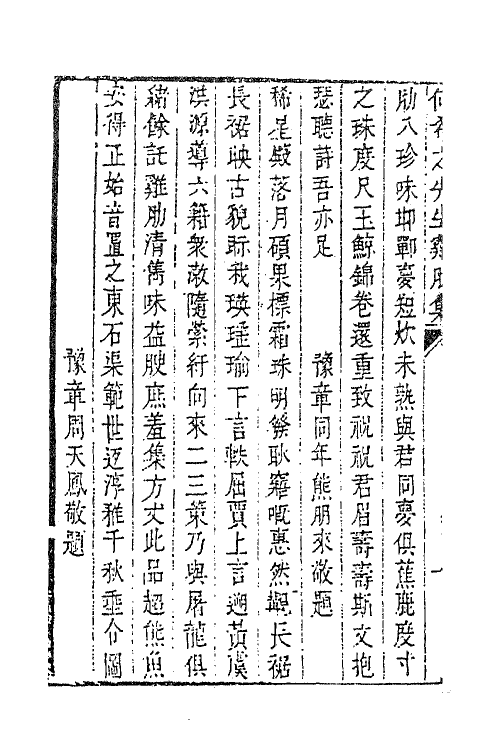 何希之先生雞肋集
肋八珍味抑鄲夢短炊未熟與君同夢俱蕉鹿度寸
之珠度尺玉鯨錦卷還重致祝祝君眉壽壽斯文抱
瑟聽詩吾亦足　豫章同年熊朋來敬題
稀星殿落月碩果標霜珠明發耿寤嘅惠然覯長裾
長裾映古貌眎我瑛瑤瑜下言軼屈賈上言遡黃虞
洪源導六籍衆隨縈紆向來二三策乃與屠龍俱
緒餘託雞肋清雋味益腴庶羞集方丈此品超熊魚
安得正始音置之東石渠範世迓淳雅千秋垂令圖
豫章周天鳳敬題